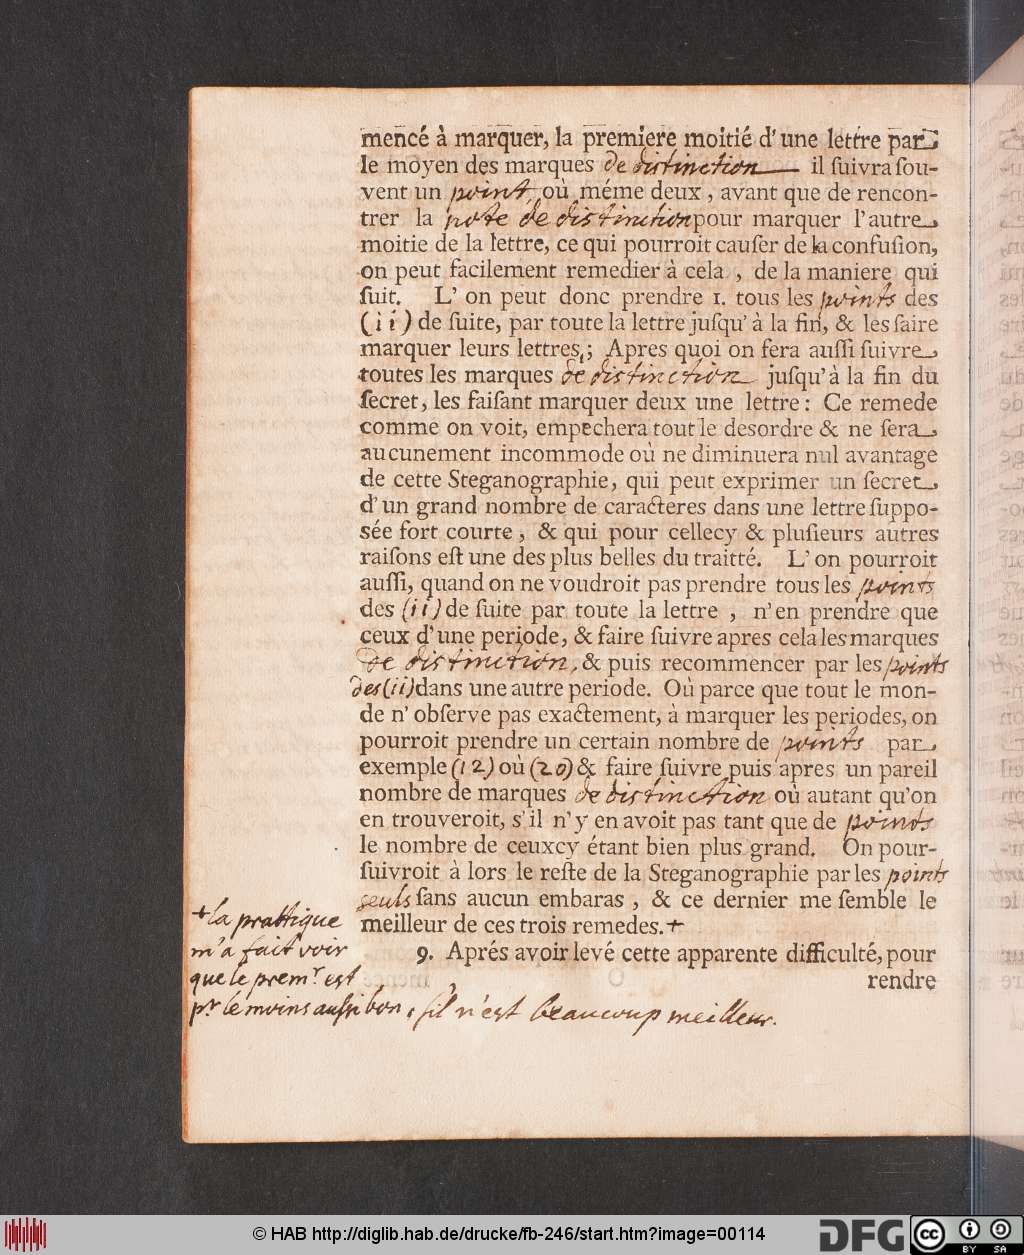 mencé à marquer, la premiere moitié d'une lettre par
le moyen des marques de distinction il ſuivra ſou-
vent un point, où méme deux, avant que de rencon-
trer la note de distinction pour marquer l'autre
moitie de la lettre, ce qui pourroit cauſer de la confuſion,
on peut facilement remedier à cela, de la maniere qui
ſuit. L'on peut donc prendre 1. tous les points des
(ii) de ſuite, par toute la lettre juſqu'à la fin, & les faire
marquer leurs lettres; Apres quoi on fera auſſi ſuivre
toutes les marques de distinction juſqu'à la fin du
ſecret, les faiſant marquer deux une lettre: Ce remede
comme on voit, empechera tout le desordre & ne ſera
aucunement incommode où ne diminuera nul avantage
de cette Steganographie, qui peut exprimer un ſecret
d'un grand nombre de caracteres dans une lettre ſuppo-
sée fort courte, & qui pour cellecy & pluſieurs autres
raiſons eſt une des plus belles du traitté. L'on pourroit
auſſi, quand on ne voudroit pas prendre tous les points
des (ii) de ſuite par toute la lettre, n'en prendre que
ceux d'une periode, & faire ſuivre apres cela les marques
de distinction, & puis recommencer par les points
des (ii) dans une autre periode. Où parce que tout le mon-
de n'obſerve pas exactement, à marquer les periodes, on
pourroit prendre un certain nombre de points par
exemple (12) où (20) & faire ſuivre puis apres un pareil
nombre de marques de distinction où autant qu'on
en trouveroit, s'il n'y en avoit pas tant que de points
le nombre de ceuxcy étant bien plus grand. On pour-
ſuivroit à lors le reſte de la Steganographie par les points
seuls ſans aucun embaras, & ce dernier me ſemble le
meilleur de ces trois remedes.+
+la prattique
m'a fait voir
que le prem.r est
pr le moins aussi bon, s'il n'est beaucoup meilleur.
9. Aprés avoir levé cette apparente difficulté, pour
rendre
© HAB http://diglib.hab.de/drucke/fb-246/start.htm?image=00114
DFG
cc BY SA